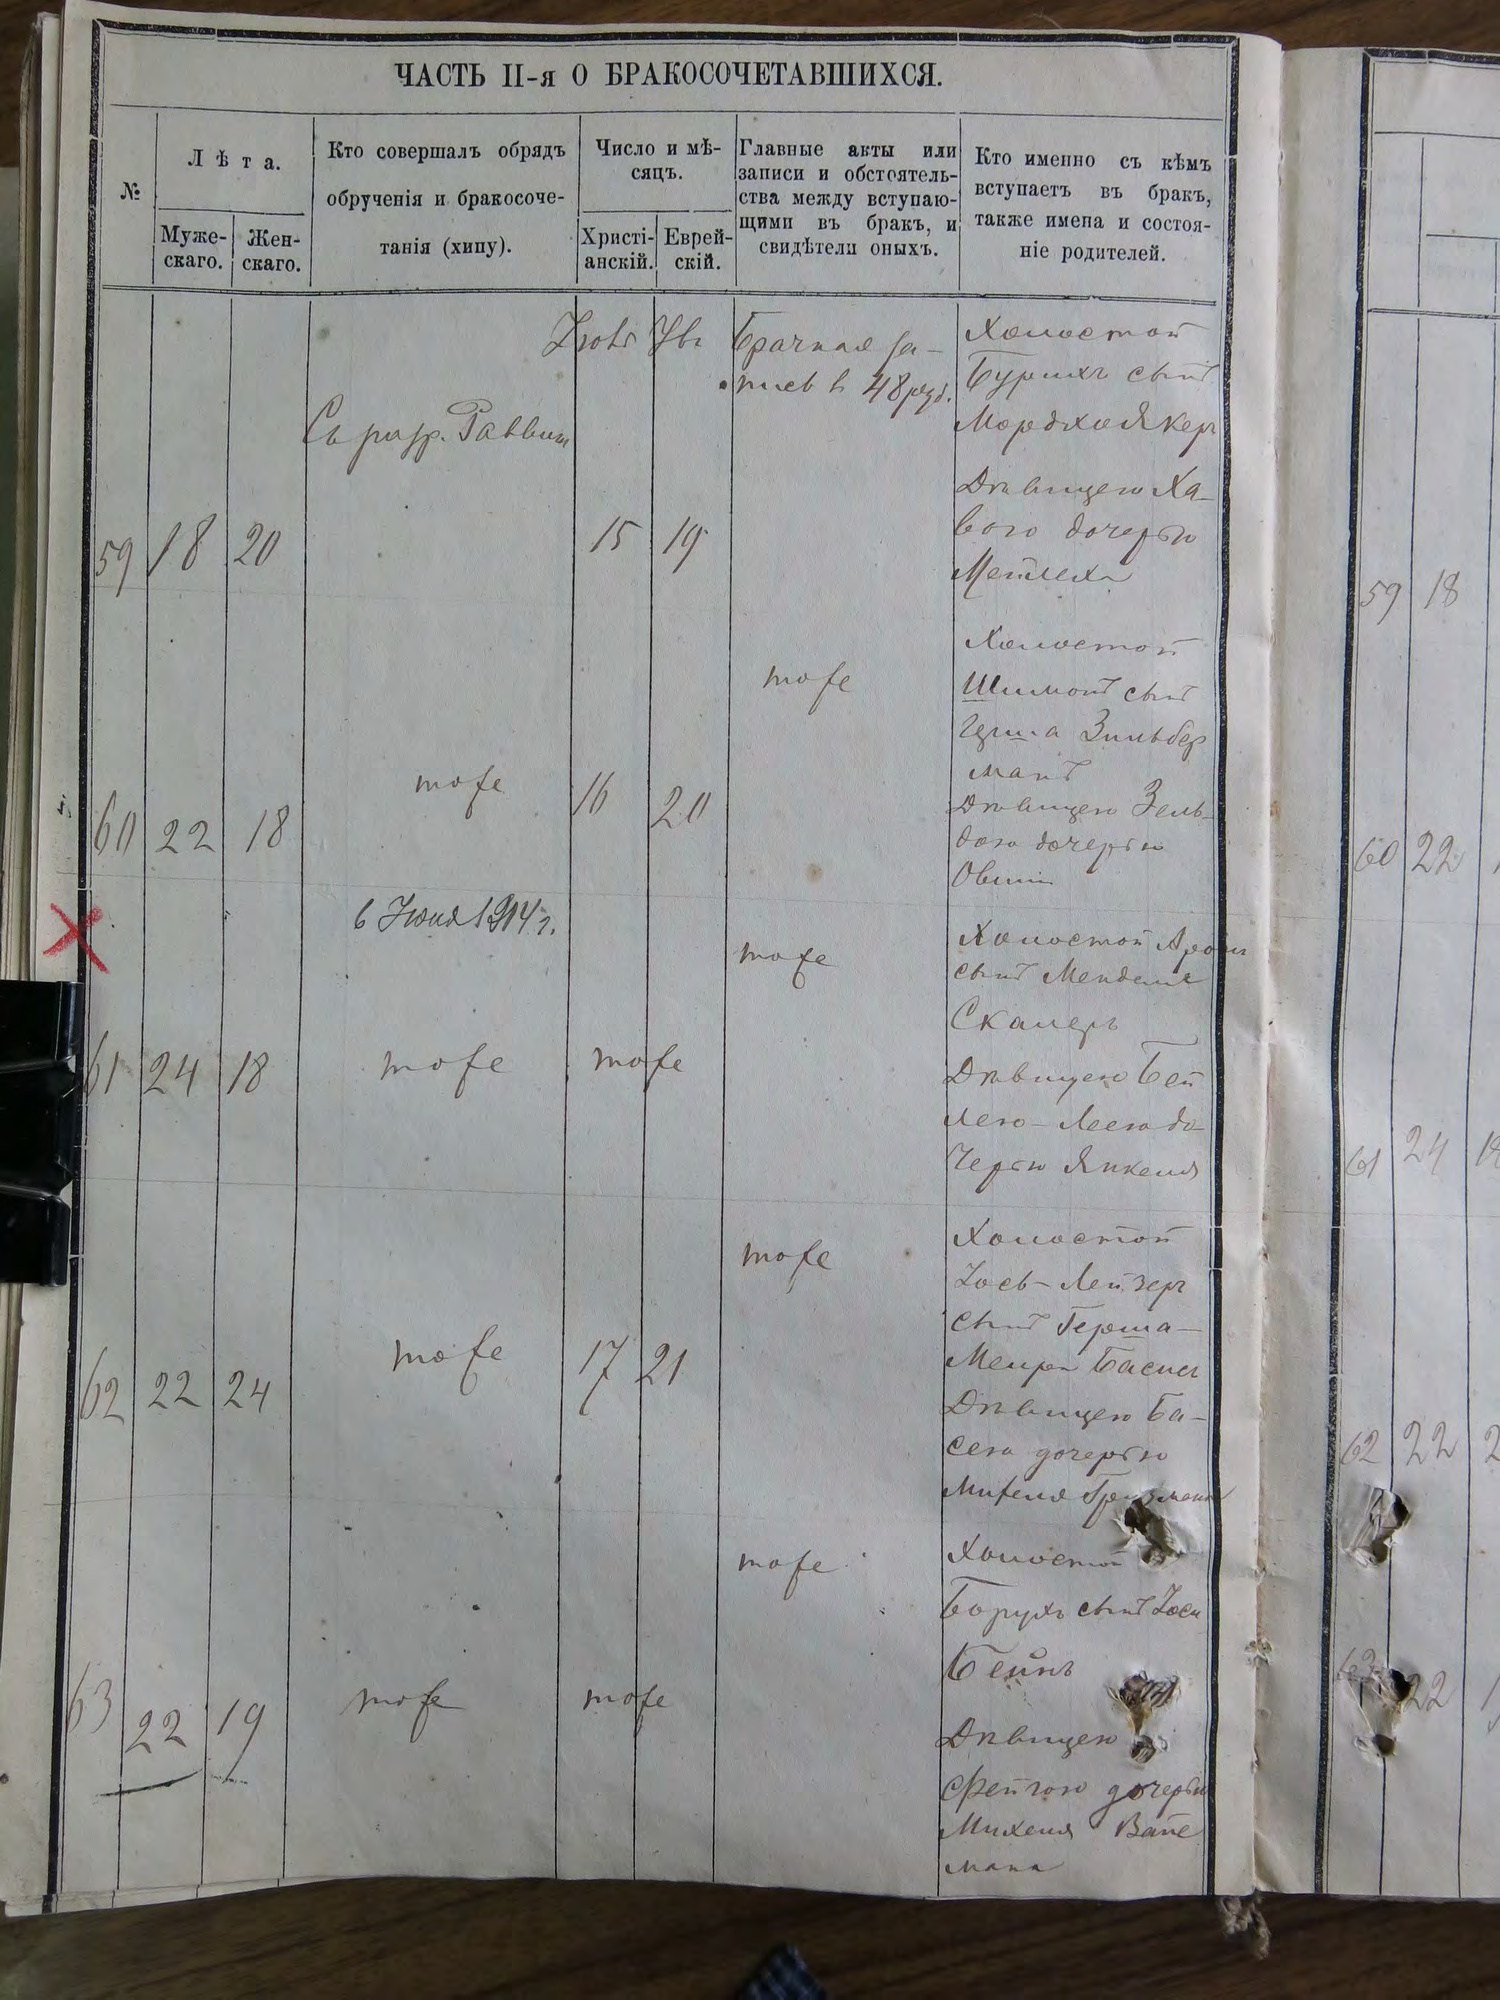 ЧАСТЬ II-я О БРАКОСОЧЕТАВШИХСЯ.
№
Лѣта.
Муже-
скаго.
Жен-
скаго.
Кто совершалъ обрядъ
обрученія и бракосоче-
танія (хипу).
Число и мѣ-
сяцъ.
Христі-
анскій.
Еврей-
скій.
Главные акты или
записи и обстоятель-
ства между вступаю-
щими въ бракъ, и
свидѣтели оныхъ.
Кто именно съ кѣмъ
вступаетъ въ бракъ,
также имена и состоя-
ніе родителей.
59 18 20
Съ разр. Раввин
15 19
Брачная за-
пись в 48 руб.
Холостой
Бурихъ сынъ
Мордха Якеръ
Дѣвицею Ха-
вого дочерью
Мейлеха
60 22 18
тоже
16 20
тоже
Холостой
Шимонъ сынъ
Герша Зильбер
манъ
Дѣвицею Зель-
дою дочерью
Овши
6 Июня 1914 г.
61 24 18
тоже
тоже
тоже
Холостой Аронъ
сынъ Менделя
Скалеръ
Дѣвицею Бей
лею-Леею до-
черью Янкеля
62 22 24
тоже
17 21
тоже
Холостой
Іось-Лейзеръ
сынъ Герша-
Меира Басисъ
Дѣвицею Ба-
сею дочерью
63 22 19
тоже
тоже
тоже
Холостой
Борухъ сынъ Іося
Бейнъ
Дѣвицею
Фейгою дочерью
Михеля Вайс
мана
59 18
60 22
61 24 18
62 22 2
63 22 1